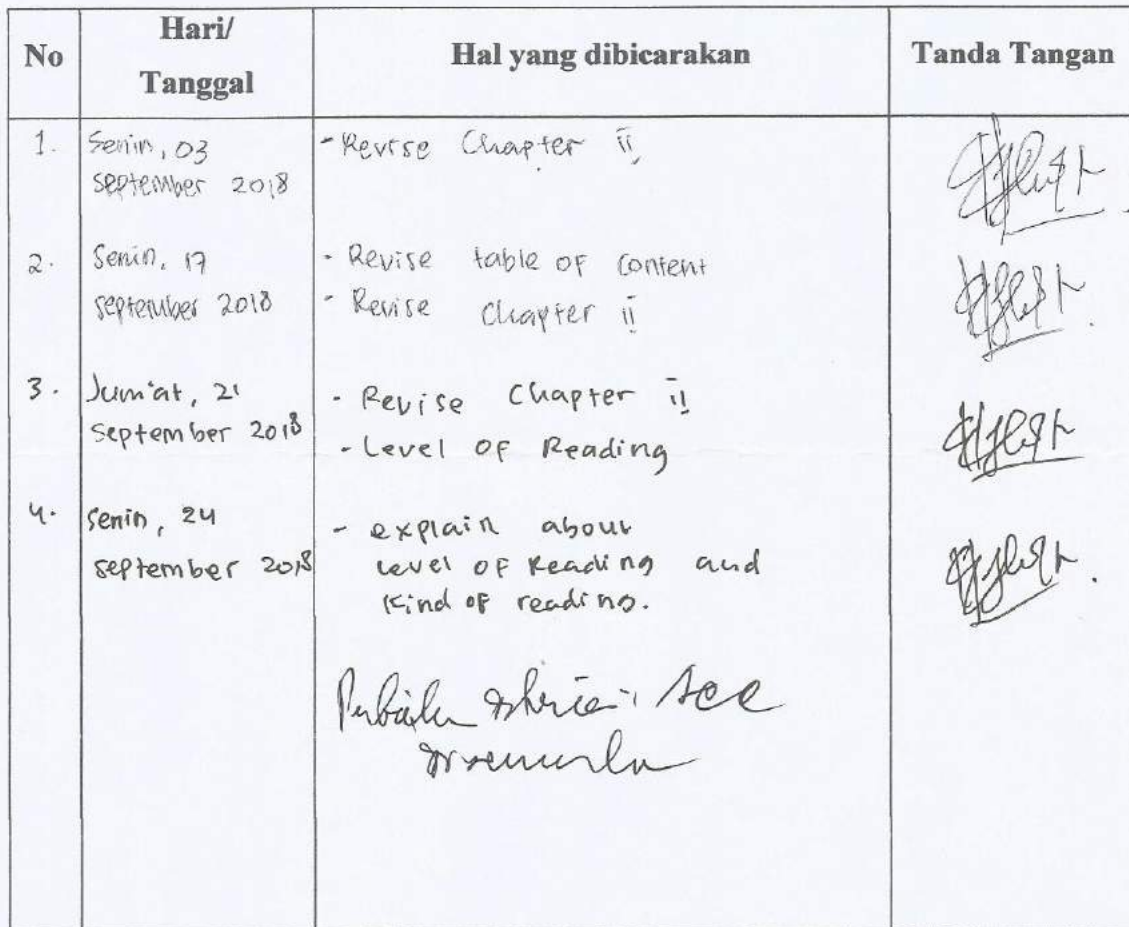 No
Hari/
Tanggal
Hal yang dibicarakan
Tanda Tangan
1.
Senin, 03
september 2018
- Revise Chapter ii
2.
Senin, 17
september 2018
- Revise table of content
- Revise Chapter ii
3.
Jum'at, 21
september 2018
- Revise Chapter ii
- Level of Reading
4.
Senin, 24
september 2018
- explain about
level of Reading and
kind of reading.
Acc